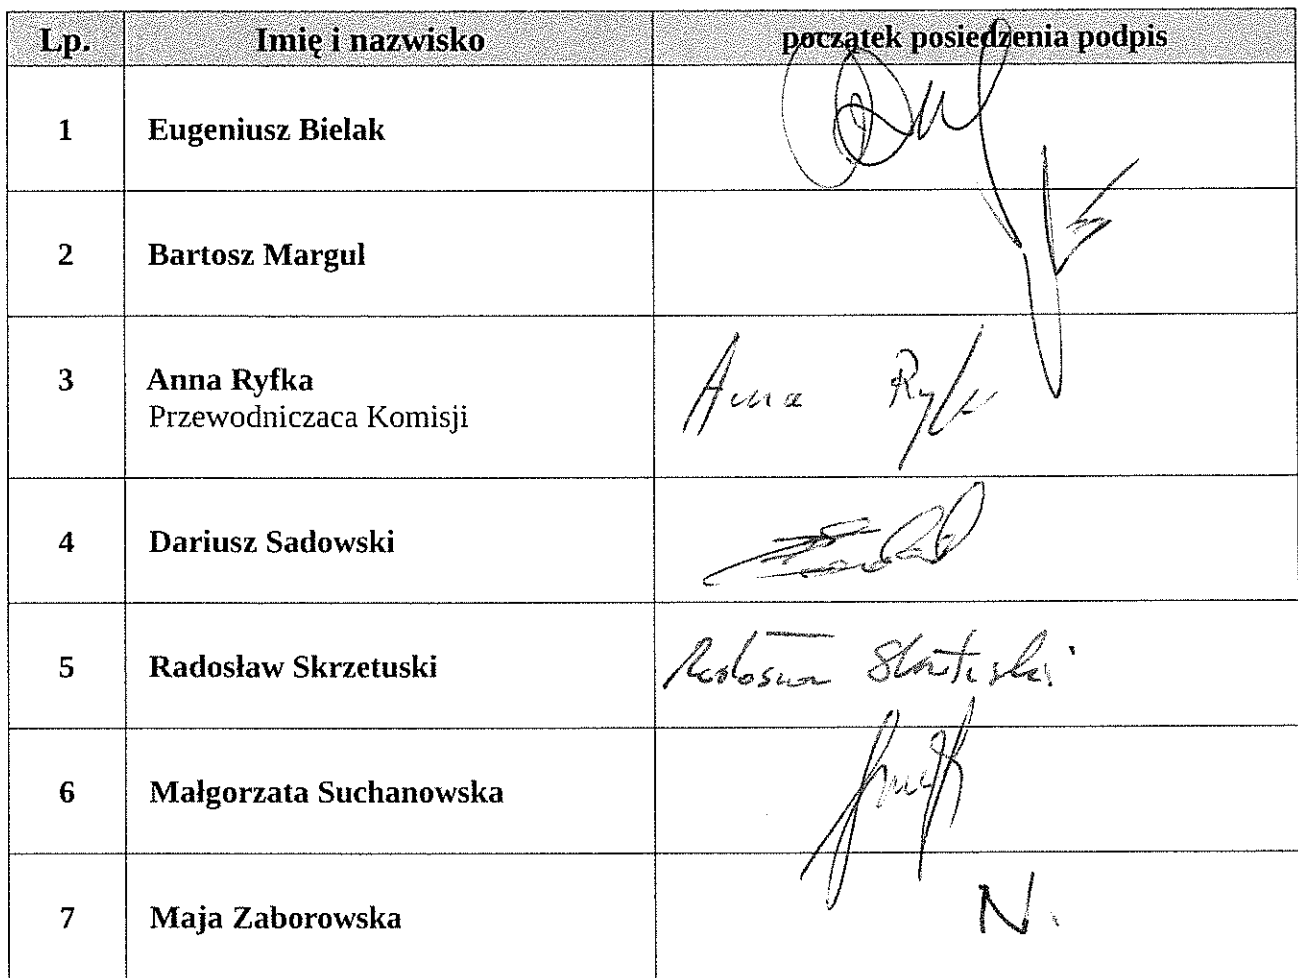 Lp. Imię i nazwisko początek posiedzenia podpis
1 Eugeniusz Bielak
2 Bartosz Margul
3 Anna Ryfka Anna
Przewodniczaca Komisji
4 Dariusz Sadowski
5 Radosław Skrzetuski
6 Małgorzata Suchanowska
7 Maja Zaborowska N.